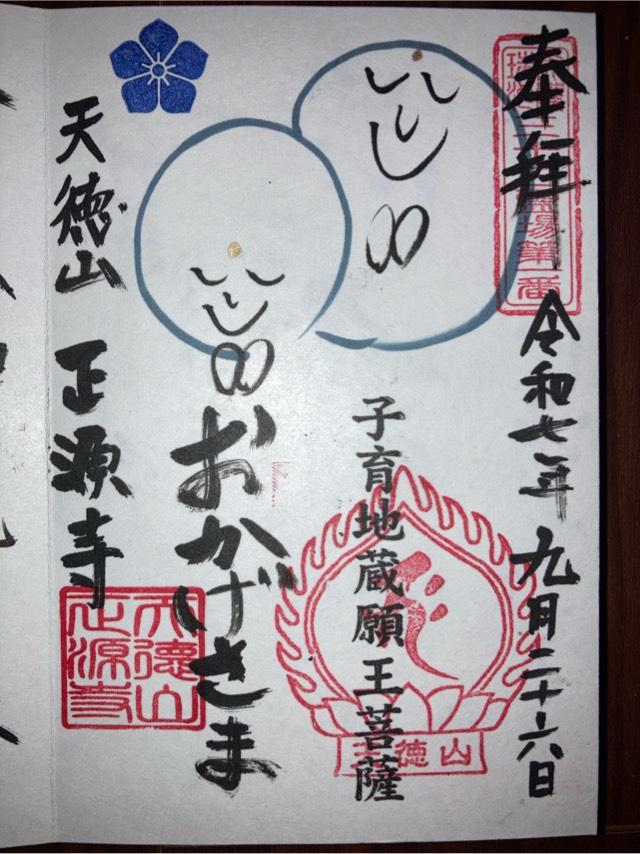 奉拝
令和七年 九月二十六日
子育地蔵願王菩薩
天徳山
おかげさま
天徳山 正源寺
天徳山
正源寺